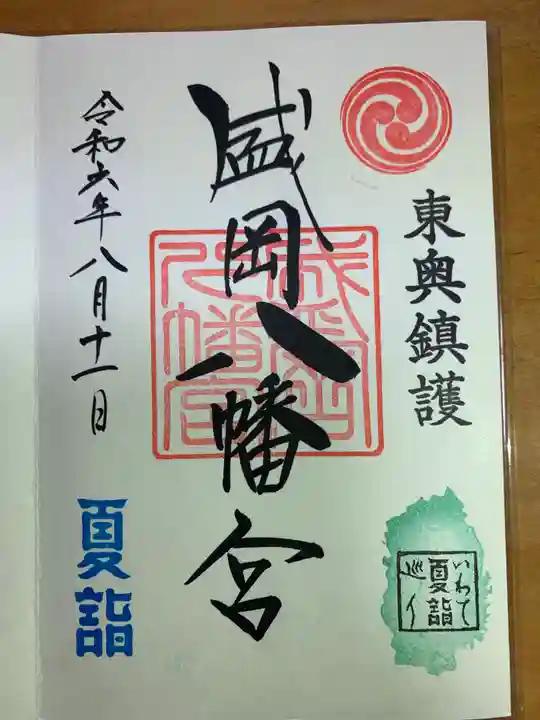 東奥鎮護
いわて
夏詣
巡り
盛岡八幡宮
令和六年八月十一日
夏詣